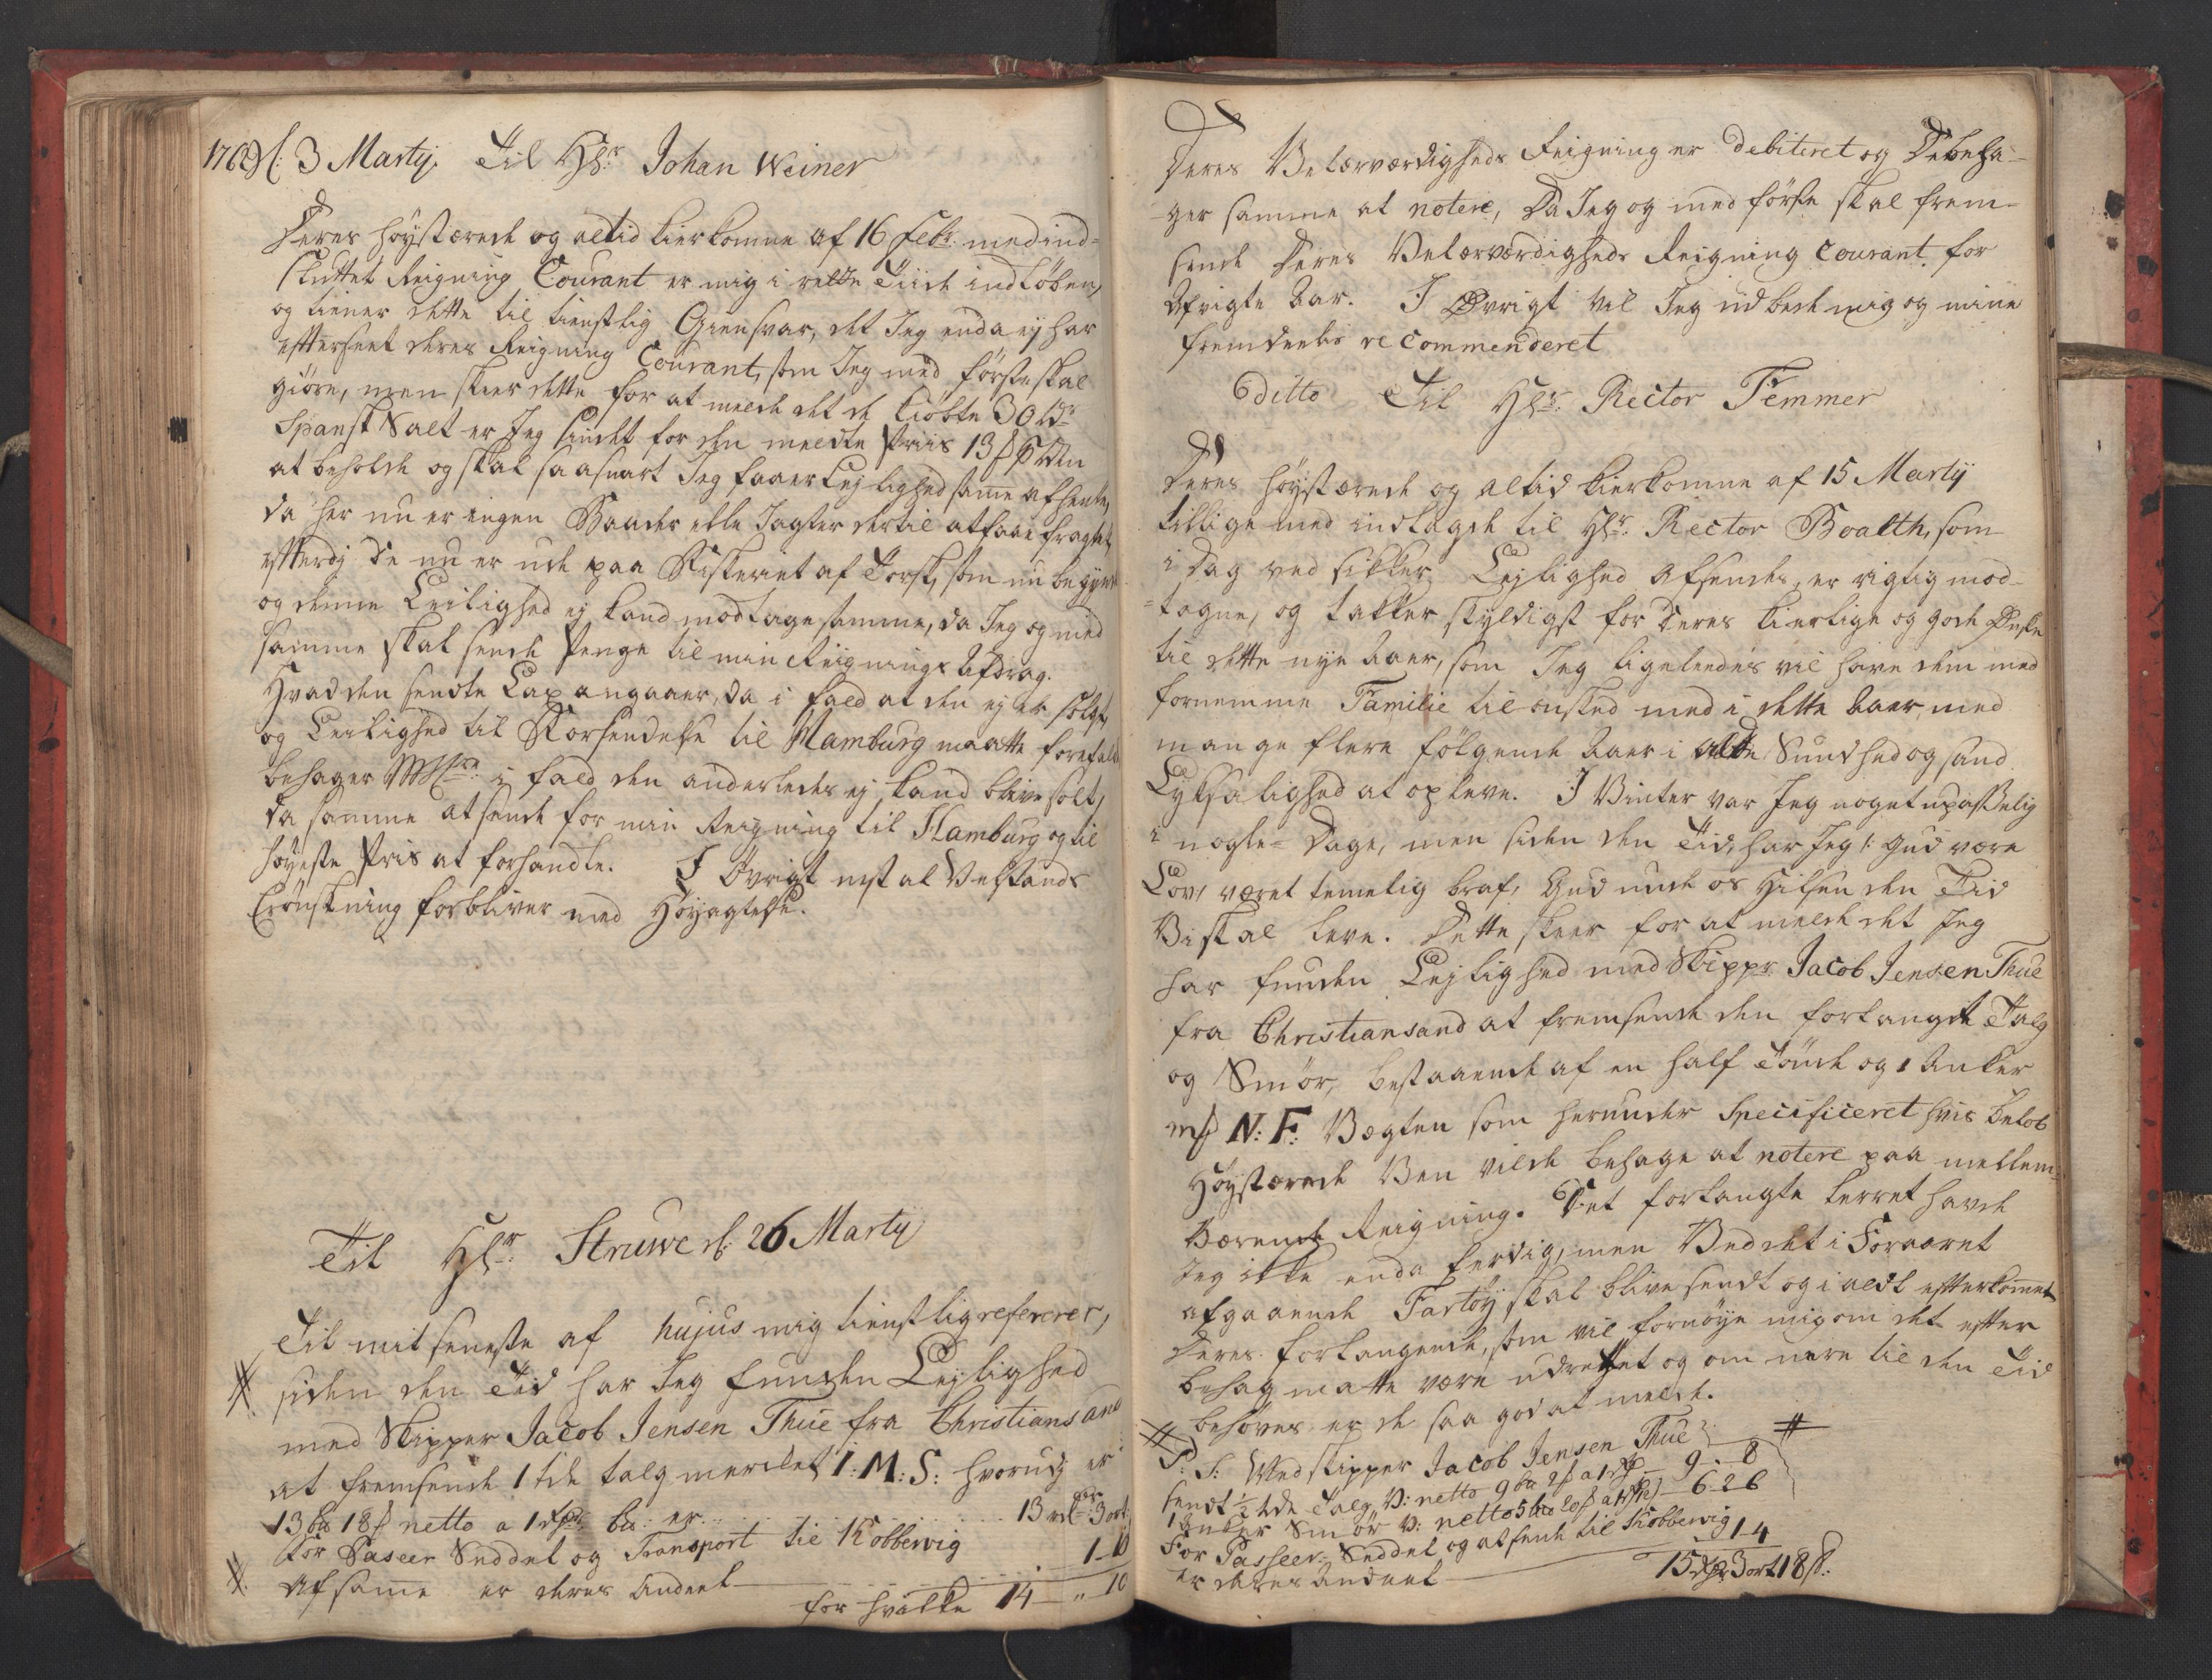 1769 d: 3 Martij. Til Hr: Johan Weiner
Deres höystærede og altid kierkomne af 16 Febr: med ind-
sluttet Reigning Courant er mig i rette Tiide indlöben,
og tiener dette til tienstlig Giensvar, det Jeg enda ej har
efterseet deres Reigning Courant, som Jeg med förste skal
giöre, men skeer dette for at melde det de kiöbte 30 tdr
Spansk Salt er Jeg sindet for den meldte Priis 13 s Tden
at beholde og skal saasnart Jeg faaer Lejlighed samme afhente,
da her nu er ingen Baader elle Jagter dertil at faae fragtet,
efterdj de nu er ude paa Fiskeriet af Torsk, som nu begynt
og denne Leilighed ej kand modtage samme, da Jeg og med
samme skal sende Penge til min Reignings Afdrag.
Hvad den sendte Lax angaaer, da i fald at den ej er solgt,
og Leilighed til Forsendelse til Hamburg maatte forefalde
behager i fald den anderledes ej kand blive solt,
da samme at sende for min Reigning til Hamburg og til
höyeste Pris at forhandle. I Övrigt nest al Velstands
Erönskning forbliver med Höyagtelse.
Til Hr: Struwe d: 26 Martij
Til mit seneste af hujus mig tienstlig refererer,
siden den Tid har Jeg funden Lejlighed
med Skipper Jacob Jensen Thue fra Christiansand
at fremsende 1 tde talg merchet I: M: S: hvorudj er
13 bu 18 s netto a 1 rdr bu: er 13 rd 3 ort
For Paseer Seddel og Transport til Kobbervig 1-10
Af samme er deres Andeel
for hvilke 14 - " 10
Deres Velærværdigheds Reigning er debiteret og Debeha-
ger samme at notere, da Jeg og med förste skal frem-
sende Deres Velærværdigheds Reigning Courant for
Afvigte Aar. I Øvrigt vil Jeg udbede mig og mine
fremdeelis recommenderet
ditto Til Hr: Rector Temmer
Deres höystærede og altid kierkomne af 15 Martij
tillige med indlagde til Hr: Rector Boalth, som
i Dag ved sikker Lejlighed afsendes, er rigtig mod-
tagne, og takker skyldigst for deres kierlige og gode Ønske
til dette nye Aar, som Jeg ligeleedes vil have dem med
fornemme Familie tilönsked med i dette Aar med
mange flere fölgende Aar i all Sundhed og sand
Lyksalighed at opleve. I Vinter var Jeg noget upasselig
i nogle Dage, men siden den Tid, har Jeg /: Gud være
Lov, været temelig braf, Gud unde os Hilsen den Tid
Vi skal leve. Dette skeer for at melde det Jeg
har funden Lejlighed med Skippr Jacob Jensen Thue
fra Christiansand at fremsende den forlangte Talg
og Smör, bestaaende af en half Tönde og 1 Anker
N: F: Vægten som herunder Specificeret hvis Belöb
Höystærede Ven vilde behage at notere paa mellem-
Værende Reigning. Det forlangte lerret havde
Jeg ikke enda ferdig, men Ved det i Foraaret
afgaaende Fartöy skal blive sendt og i aldt efterkommet
Deres forlangende, som vil fornöye mig om det efter
behag matte være udrettet og om mere til den Tid
behöves er de saa god at melde.
P: S: Med skipper Jacob Jensen Thue
sendt ½ tde Talg, V: netto 9 bu 2 s a 1 rdr 9 - 8
1 Anker Smör V: netto 5 bu 20 s 6-2 6
For Passeer-Seddel og at sende til Kobbervig 1-4
er deres Andeel 15 rdr 3 ort 18 s: